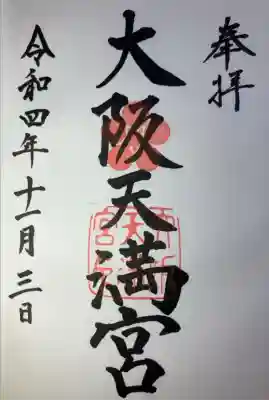 奉拝
大阪天満宮
令和四年十一月三日